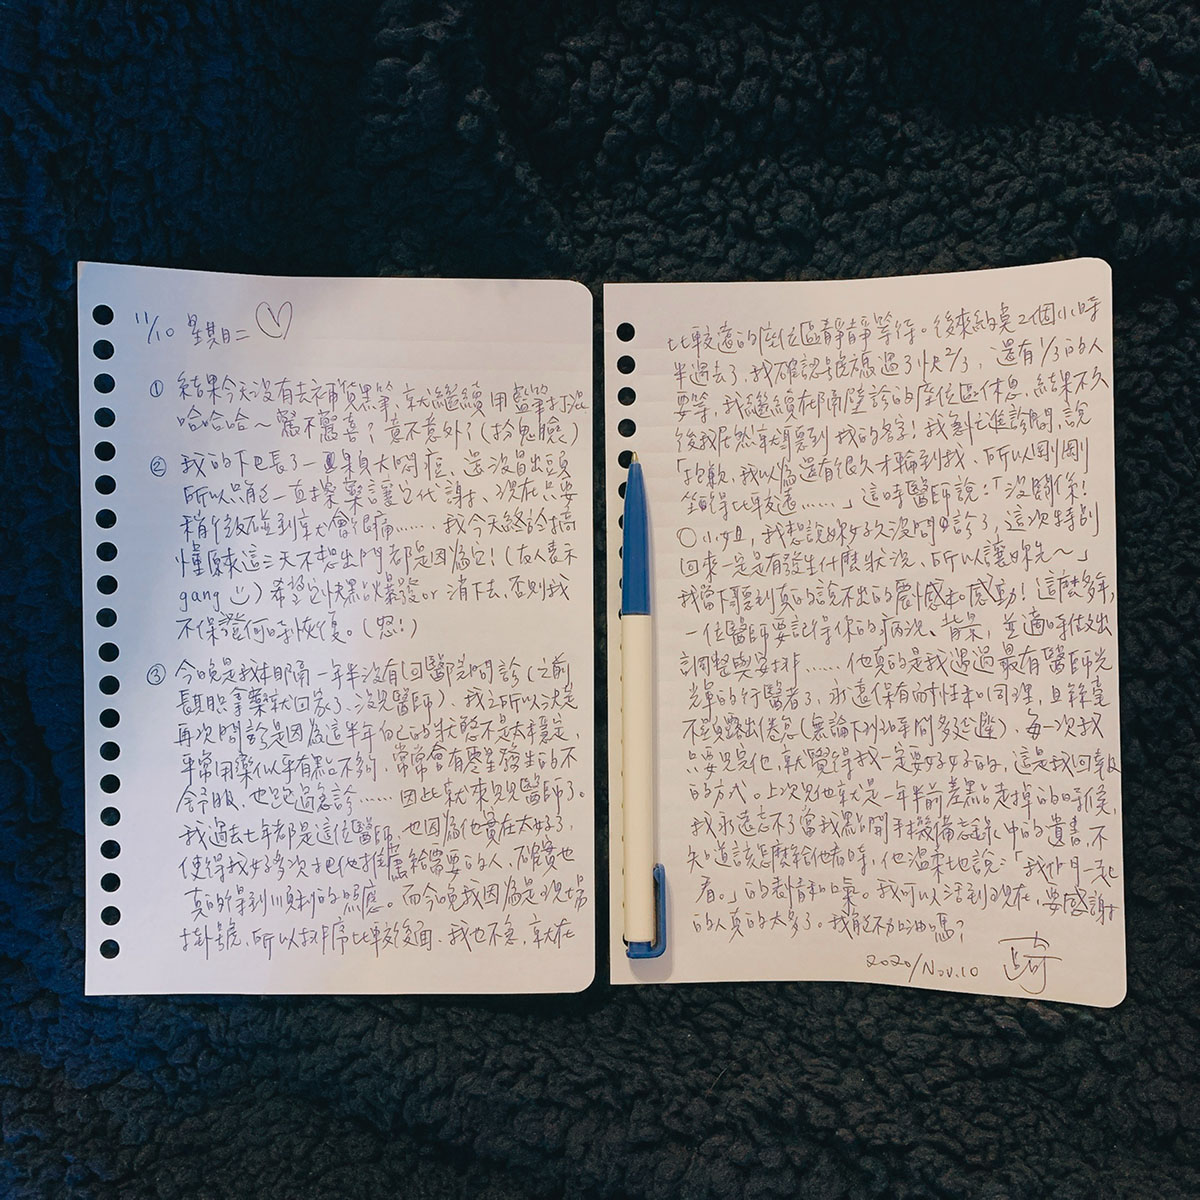 11/10 星期二 ♡
① 結果今天沒有去補貨黑筆，就繼續用藍筆打混
哈哈哈～驚不驚喜？意不意外？(扮鬼臉)
② 我的下巴長了一顆大悶痘、還沒冒出頭
所以只能一直擦藥讓它代謝，現在只要
稍微碰到就會很痛……我今天終於搞
懂原來這三天不想出門都是因為它！(友人表示
gang) 希望它快點爆發or消下去、否則我
不保證何時恢復。(怒!)
③ 今晚是我相隔一年半沒有回醫院問診(之前
長期拿藥就回家了、沒見醫師)、我之所以決定
再次問診是因為這半年自己的狀態不是太穩定，
平常用藥似乎有點不夠，常常會有零星發生的不
舒服，也跑過急診……因此就來見見醫師了。
我過去七年都是這位醫師，也因為他實在太好了，
使得我好多次把他推薦給需要的人，確實也
真的得到順利的照應。而今晚我因為是現場
掛號，所以排序比較後面，我也不急，就在
比較遠的座位區靜靜等待。後來約莫2個小時
半過去了，我確認號碼過了快2/3，還有1/3的人
要等，我繼續在隔壁診的座位區休息，結果不久
後我居然就聽到我的名字！我衝進診間，說
「抱歉，我以為還有很久才輪到我、所以剛剛
坐得比較遠……」這時醫師說：「沒關係！
○小姐，我想說妳好多次沒問診了，這次特別
回來一定是有發生什麼狀況，所以讓妳先～」
我當下聽到真的說不出的震撼和感動！這麼多年，
一位醫師要記得你的病況、背景，並適時做出
調整與安排……他真的是我遇過最有醫師光
輝的行醫者了，永遠保有耐性和同理，且絲毫
不曾顯露出倦怠(無論下班時間多延遲)、每一次我
只要見完他，就覺得我一定要好好的，這是我回報
的方式。上次見他就是一年半前差點走掉的時候，
我永遠忘不了當我點開手機備忘錄中的遺書，不
知道該怎麼給他看時，他溫柔地說：「我們一起
看。」的表情和口氣。我可以活到現在，要感謝
的人真的太多了。我能不加油嗎？
2020/Nov.10 琦